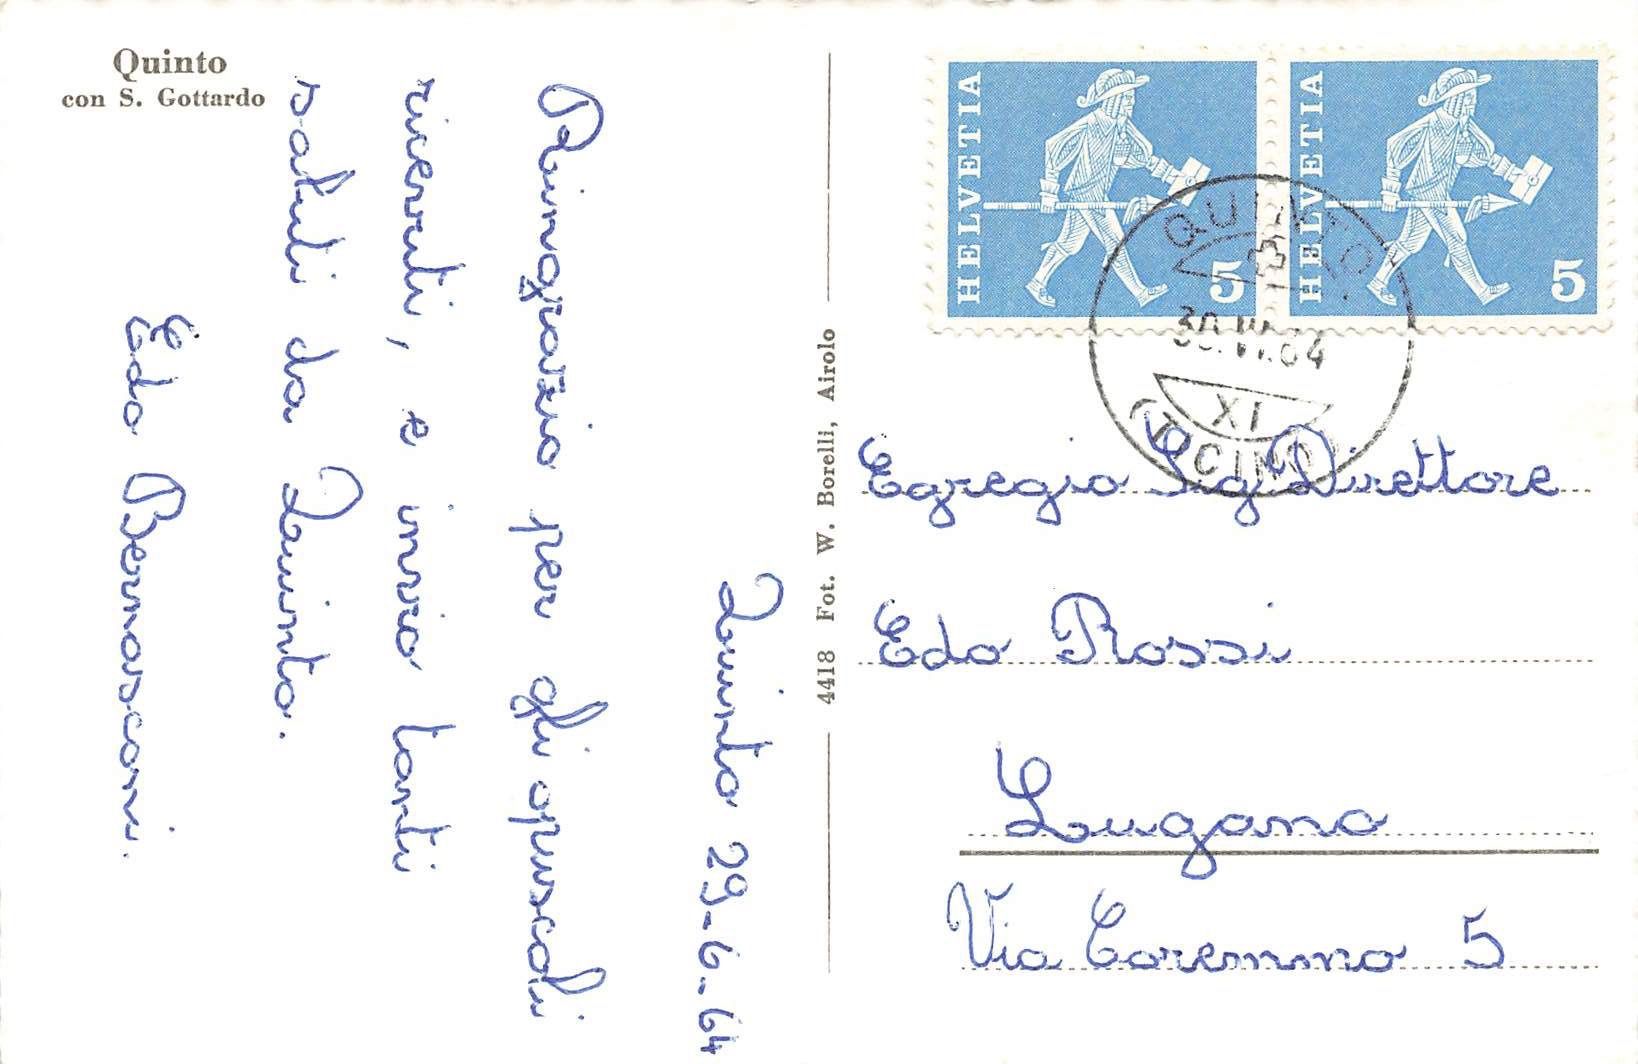 Quinto
con S. Gottardo
Quinto 29-6-64
Ringrazio per gli opuscoli
ricevuti, e invio tanti
saluti da Quinto.
Edo Bernasconi.
4418 Fot. W. Borelli, Airolo
HELVETIA 5
HELVETIA 5
QUINTO
30.VI.64
XI
(TICINO)
Egregio Sig. Direttore
Edo Rossi
Lugano
Via Coremmo 5